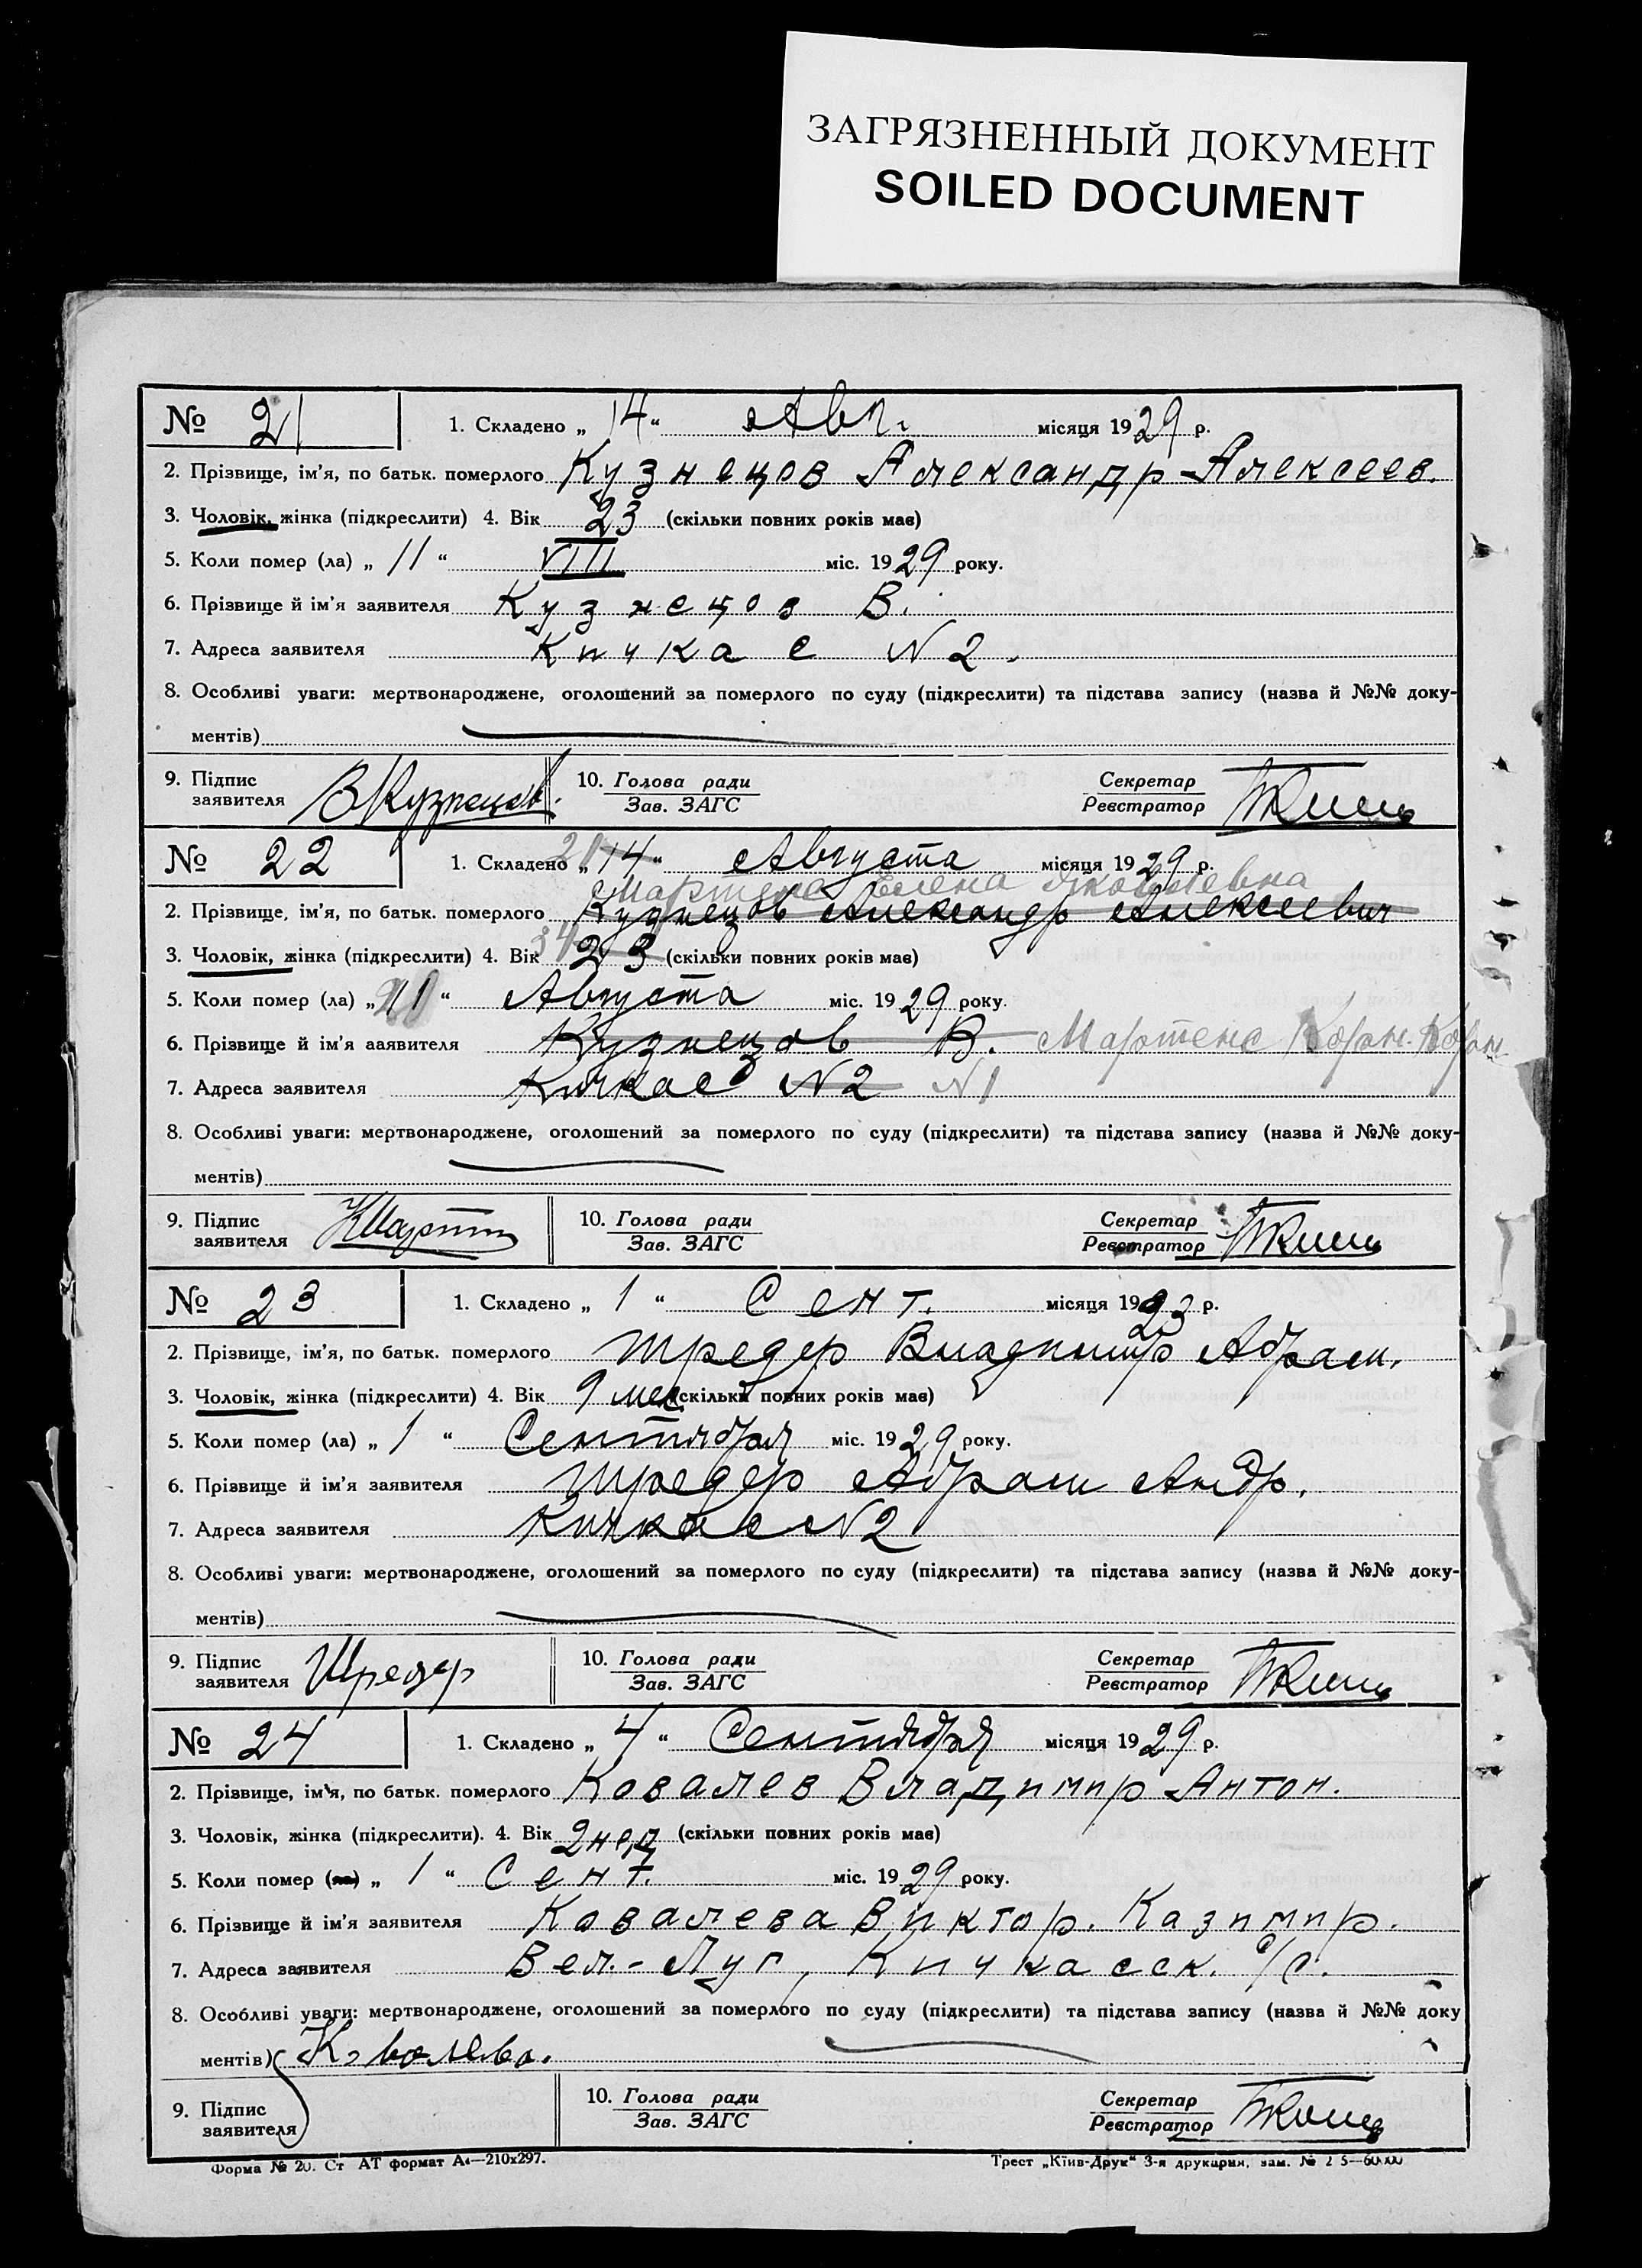 ЗАГРЯЗНЕННЫЙ ДОКУМЕНТ
SOILED DOCUMENT
№ 21 1. Складено „ 14 “ Авг. місяця 1929 р.
2. Прізвище, ім’я, по батьк. померлого Кузнецов Александр Алексеев.
3. Чоловік, жінка (підкреслити) 4. Вік 23 (скільки повних років має)
5. Коли помер (ла) „ 11 “ VIII міс. 1929 року.
6. Прізвище й ім’я заявителя Кузнецов В.
7. Адреса заявителя Кичкас N 2.
8. Особливі уваги: мертвонароджене, оголошений за померлого по суду (підкреслити) та підстава запису (назва й №№ доку-
ментів)
9. Підпис заявителя ВКузнецов. 10. Голова ради Зав. ЗАГС Секретар Реєстратор
№ 22 1. Складено 21 „ 14 “ Августа місяця 1929 р.
Мартенс Елена Яковлевна
2. Прізвище, ім’я, по батьк. померлого Кузнецов Александр Алексеевич
3. Чоловік, жінка (підкреслити) 4. Вік 34 23 (скільки повних років має)
5. Коли помер (ла) „ “ Августа міс. 1929 року.
6. Прізвище й ім’я заявителя Кузнецов В. Мартенс Корн. Корн
7. Адреса заявителя Кичкас N2 N1
8. Особливі уваги: мертвонароджене, оголошений за померлого по суду (підкреслити) та підстава запису (назва й №№ доку-
ментів)
9. Підпис заявителя 10. Голова ради Зав. ЗАГС Секретар Реєстратор
№ 23 1. Складено „ 1 “ Сент. місяця 19 р.
2. Прізвище, ім’я, по батьк. померлого Шредер Владимир Абрам.
3. Чоловік, жінка (підкреслити) 4. Вік 9 мес (скільки повних років має)
5. Коли помер (ла) „ 1 “ Сентября міс. 1929 року.
6. Прізвище й ім’я заявителя Шредер Абрам Андр.
7. Адреса заявителя Кичкас N2
8. Особливі уваги: мертвонароджене, оголошений за померлого по суду (підкреслити) та підстава запису (назва й №№ доку-
ментів)
9. Підпис заявителя Шредер 10. Голова ради Зав. ЗАГС Секретар Реєстратор
№ 24 1. Складено „ 4 “ Сентября місяця 1929 р.
2. Прізвище, ім’я, по батьк. померлого Ковалев Владимир Антон.
3. Чоловік, жінка (підкреслити). 4. Вік 2 нед (скільки повних років має)
5. Коли помер (ла) „ 1 “ Сент. міс. 1929 року.
6. Прізвище й ім’я заявителя Ковалева Виктор. Казимир.
7. Адреса заявителя Вел.-Луг, Кичкасск. с/с.
8. Особливі уваги: мертвонароджене, оголошений за померлого по суду (підкреслити) та підстава запису (назва й №№ доку
ментів) Ковалева.
9. Підпис заявителя 10. Голова ради Зав. ЗАГС Секретар Реєстратор
Форма № 20. Ст АТ формат А4—210х297. Трест „Київ-Друк“ 3-я друкарня, зам. №